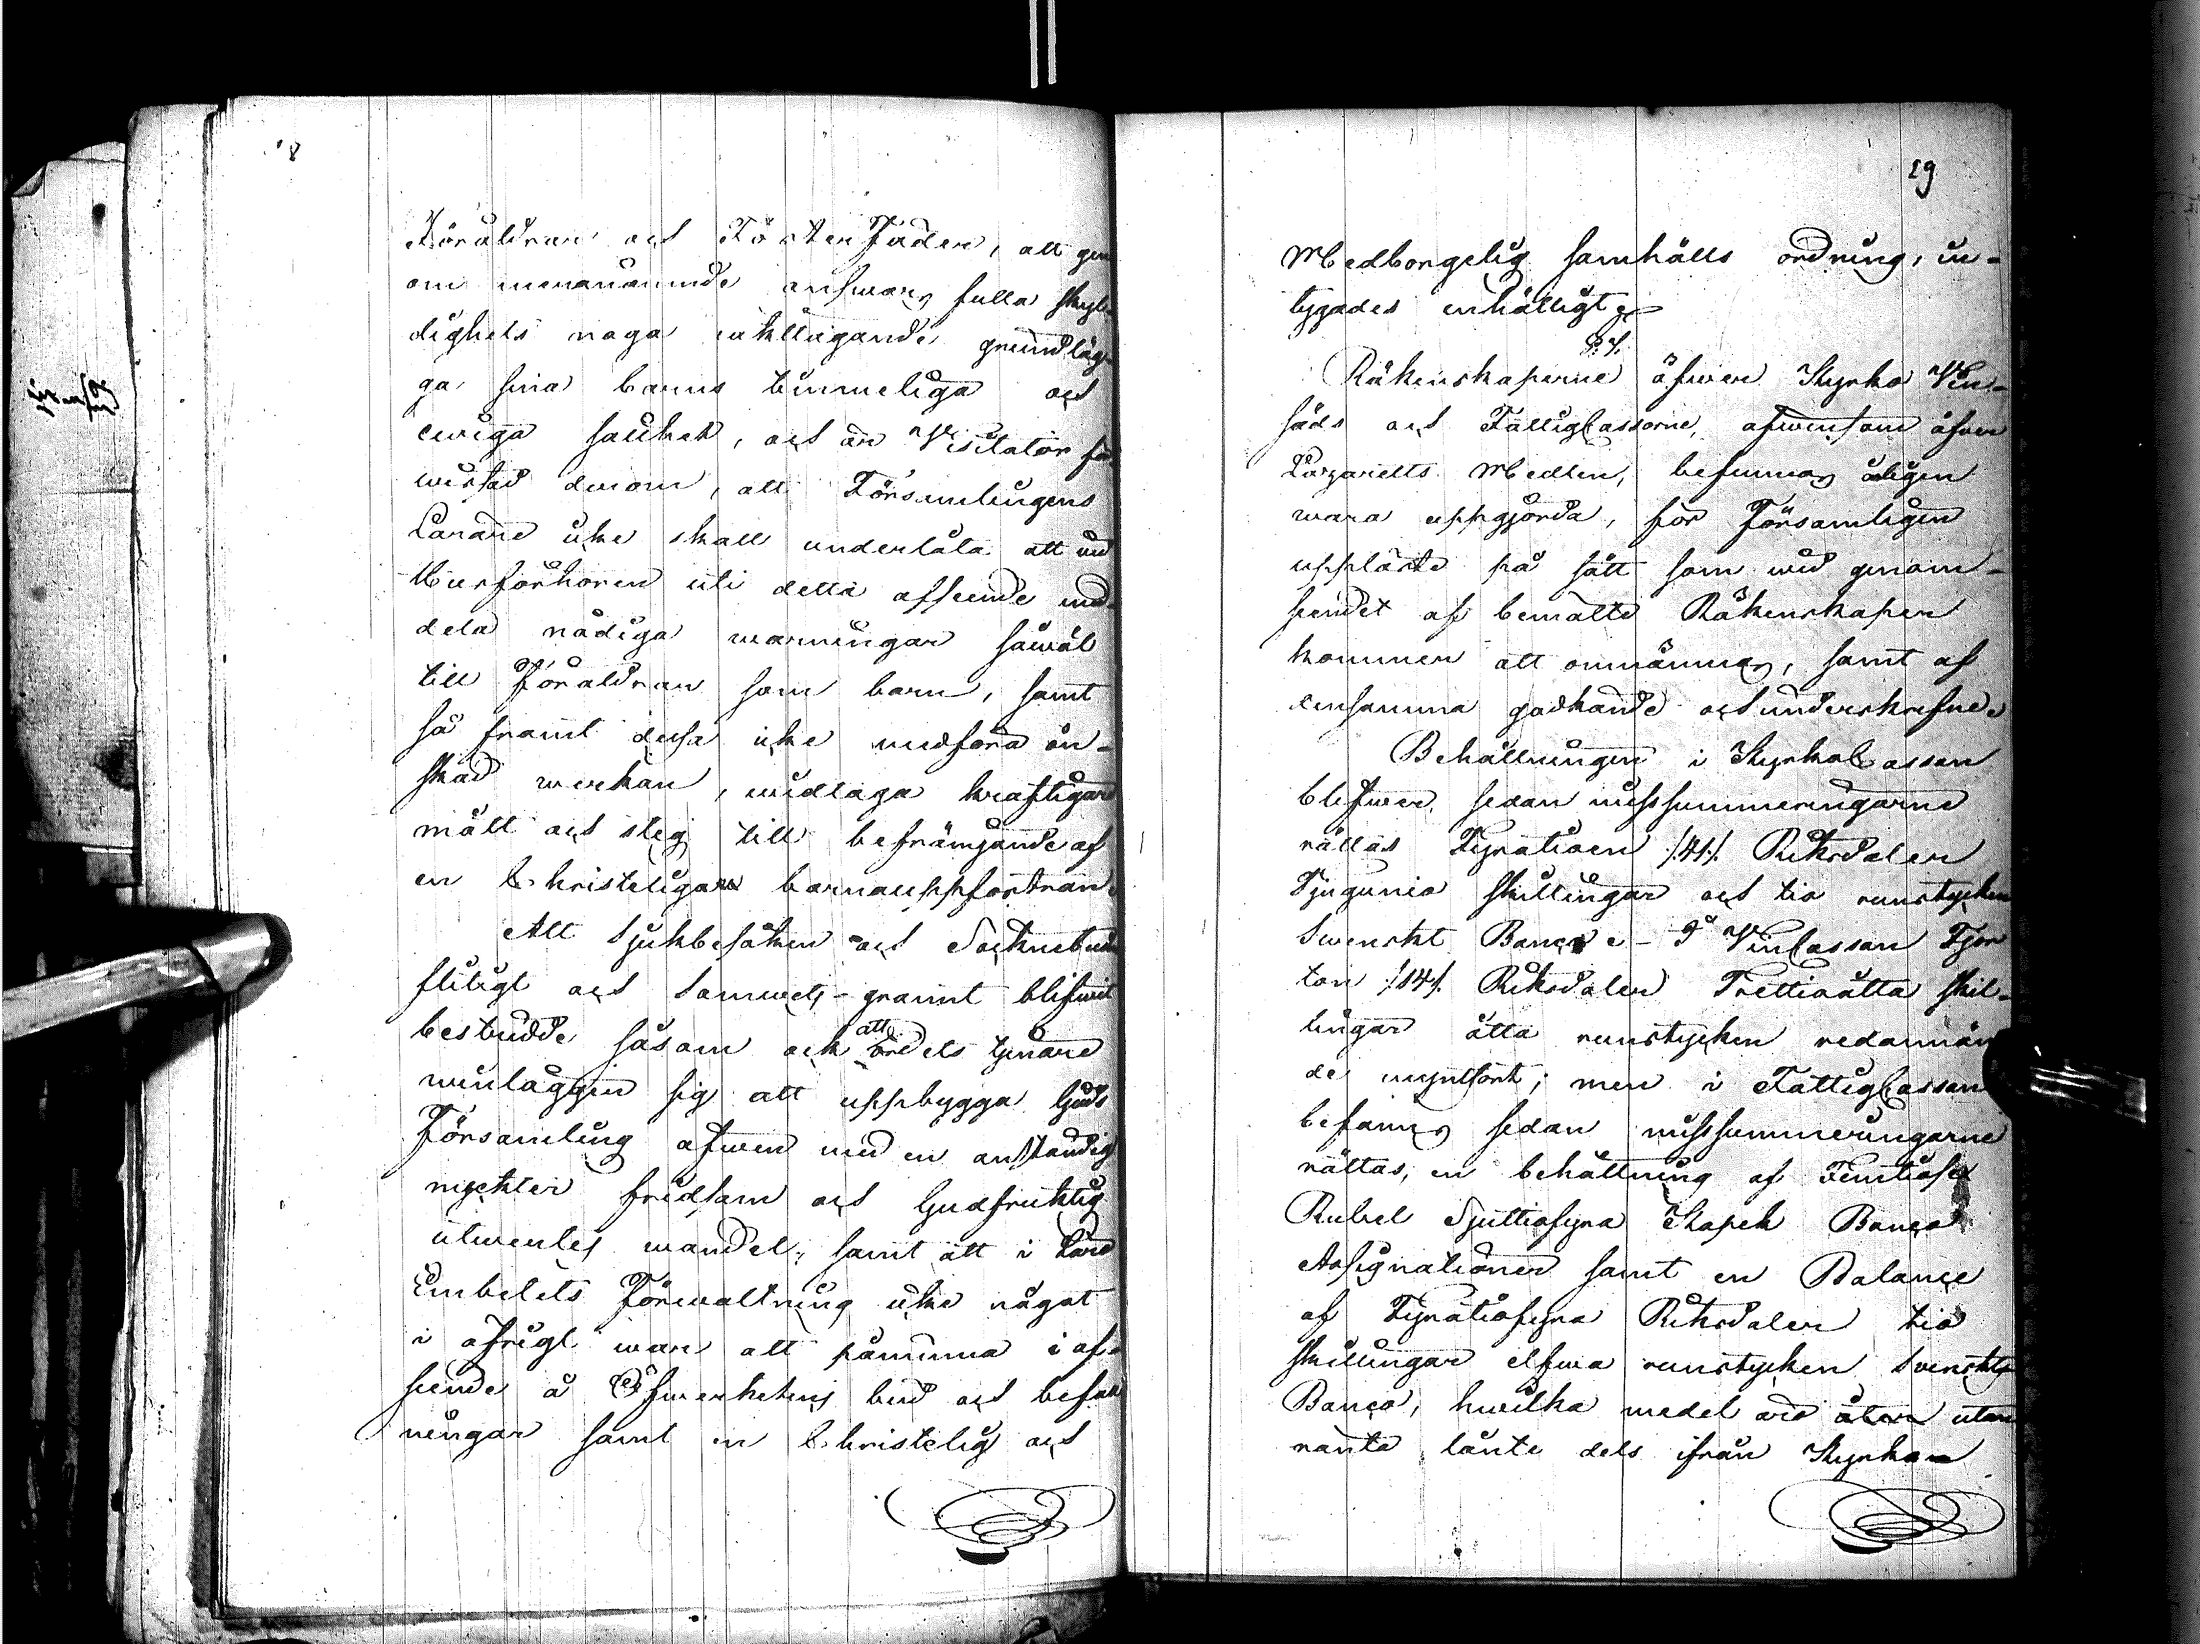 Föräldrar och Foster Fäder, att gen
om answars fulla skyl-
dighets noga iakttagande grundläg-
ga sina barns timmeliga och
ewiga sällhet, och är Visitator för
wissad derom, att Församlingens
Lärare icke skall underlåta att wid
Husförhören uti detta afseende med-
dela nådiga warningar såwäl
till Föräldrar som barn, samt
så framt dessa icke medföra ön-
skad werkan, widtaga kraftigare
mått och steg till befrämjande af
en Christeligare barnauppfostran.
Att Sjukbesöken och Sockne
flitigt och samwets-grannt blifwit
bestridde såsom ock att ordets tjenare
winlaggin sig att uppbygga Guds
Församling äfwen med en anständig
nychter fridsam och Gudfruktig
utwertes wandel, samt att i Läro
Embetets Förwaltning icke något
i öfrigt war att påminna i af-
seende å Öfwerhetens bud och befall
ningar samt en Christelig och
29
Medborgelig samhälls ordning, in-
tygades enhälligt
§. 7.
Räkenskaperne öfwer Kyrko Vin-
säds och FattigCassorne, äfwensom öfwer
Lazaretts Medlen, befunnos
wara uppgjorda, för Församligen
uppläste på sätt som wid genom-
seendet af bemälte Räkenskaper
kommer att omnämnas, samt af
densamma godkände och underskrefne.
Behållningen i KyrkoCassan
blifwer, sedan missummeringarne
rättas Fyratioen /:41:/ Riksdaler
Tjugunio skillingar och tio runstycken
Swenskt Banco - I VinCassan Fjor
ton /:14:/ Riksdaler Trettioåtta skil-
lingar åtta runstycken nedannäm
de myntsort; men i FattigCassan
befanns sedan missummeringarne
rättas, en behållning af Femtiosex
Rubel Sjuttiofyra Kopek Banco
Assignationer samt en Balance
af Fyratiofyra Riksdaler tio
skillingar elfwa runstycken Svenskt
Banco, hwilka medel äro åter utan
ränta länte dels ifrån Kyrkan